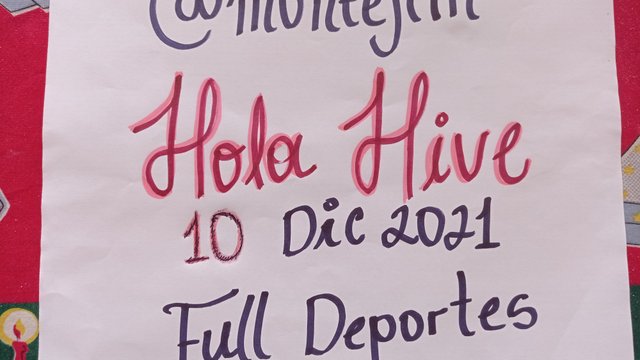 @montejim
Hola Hive
10 Dic 2021
Full Deportes